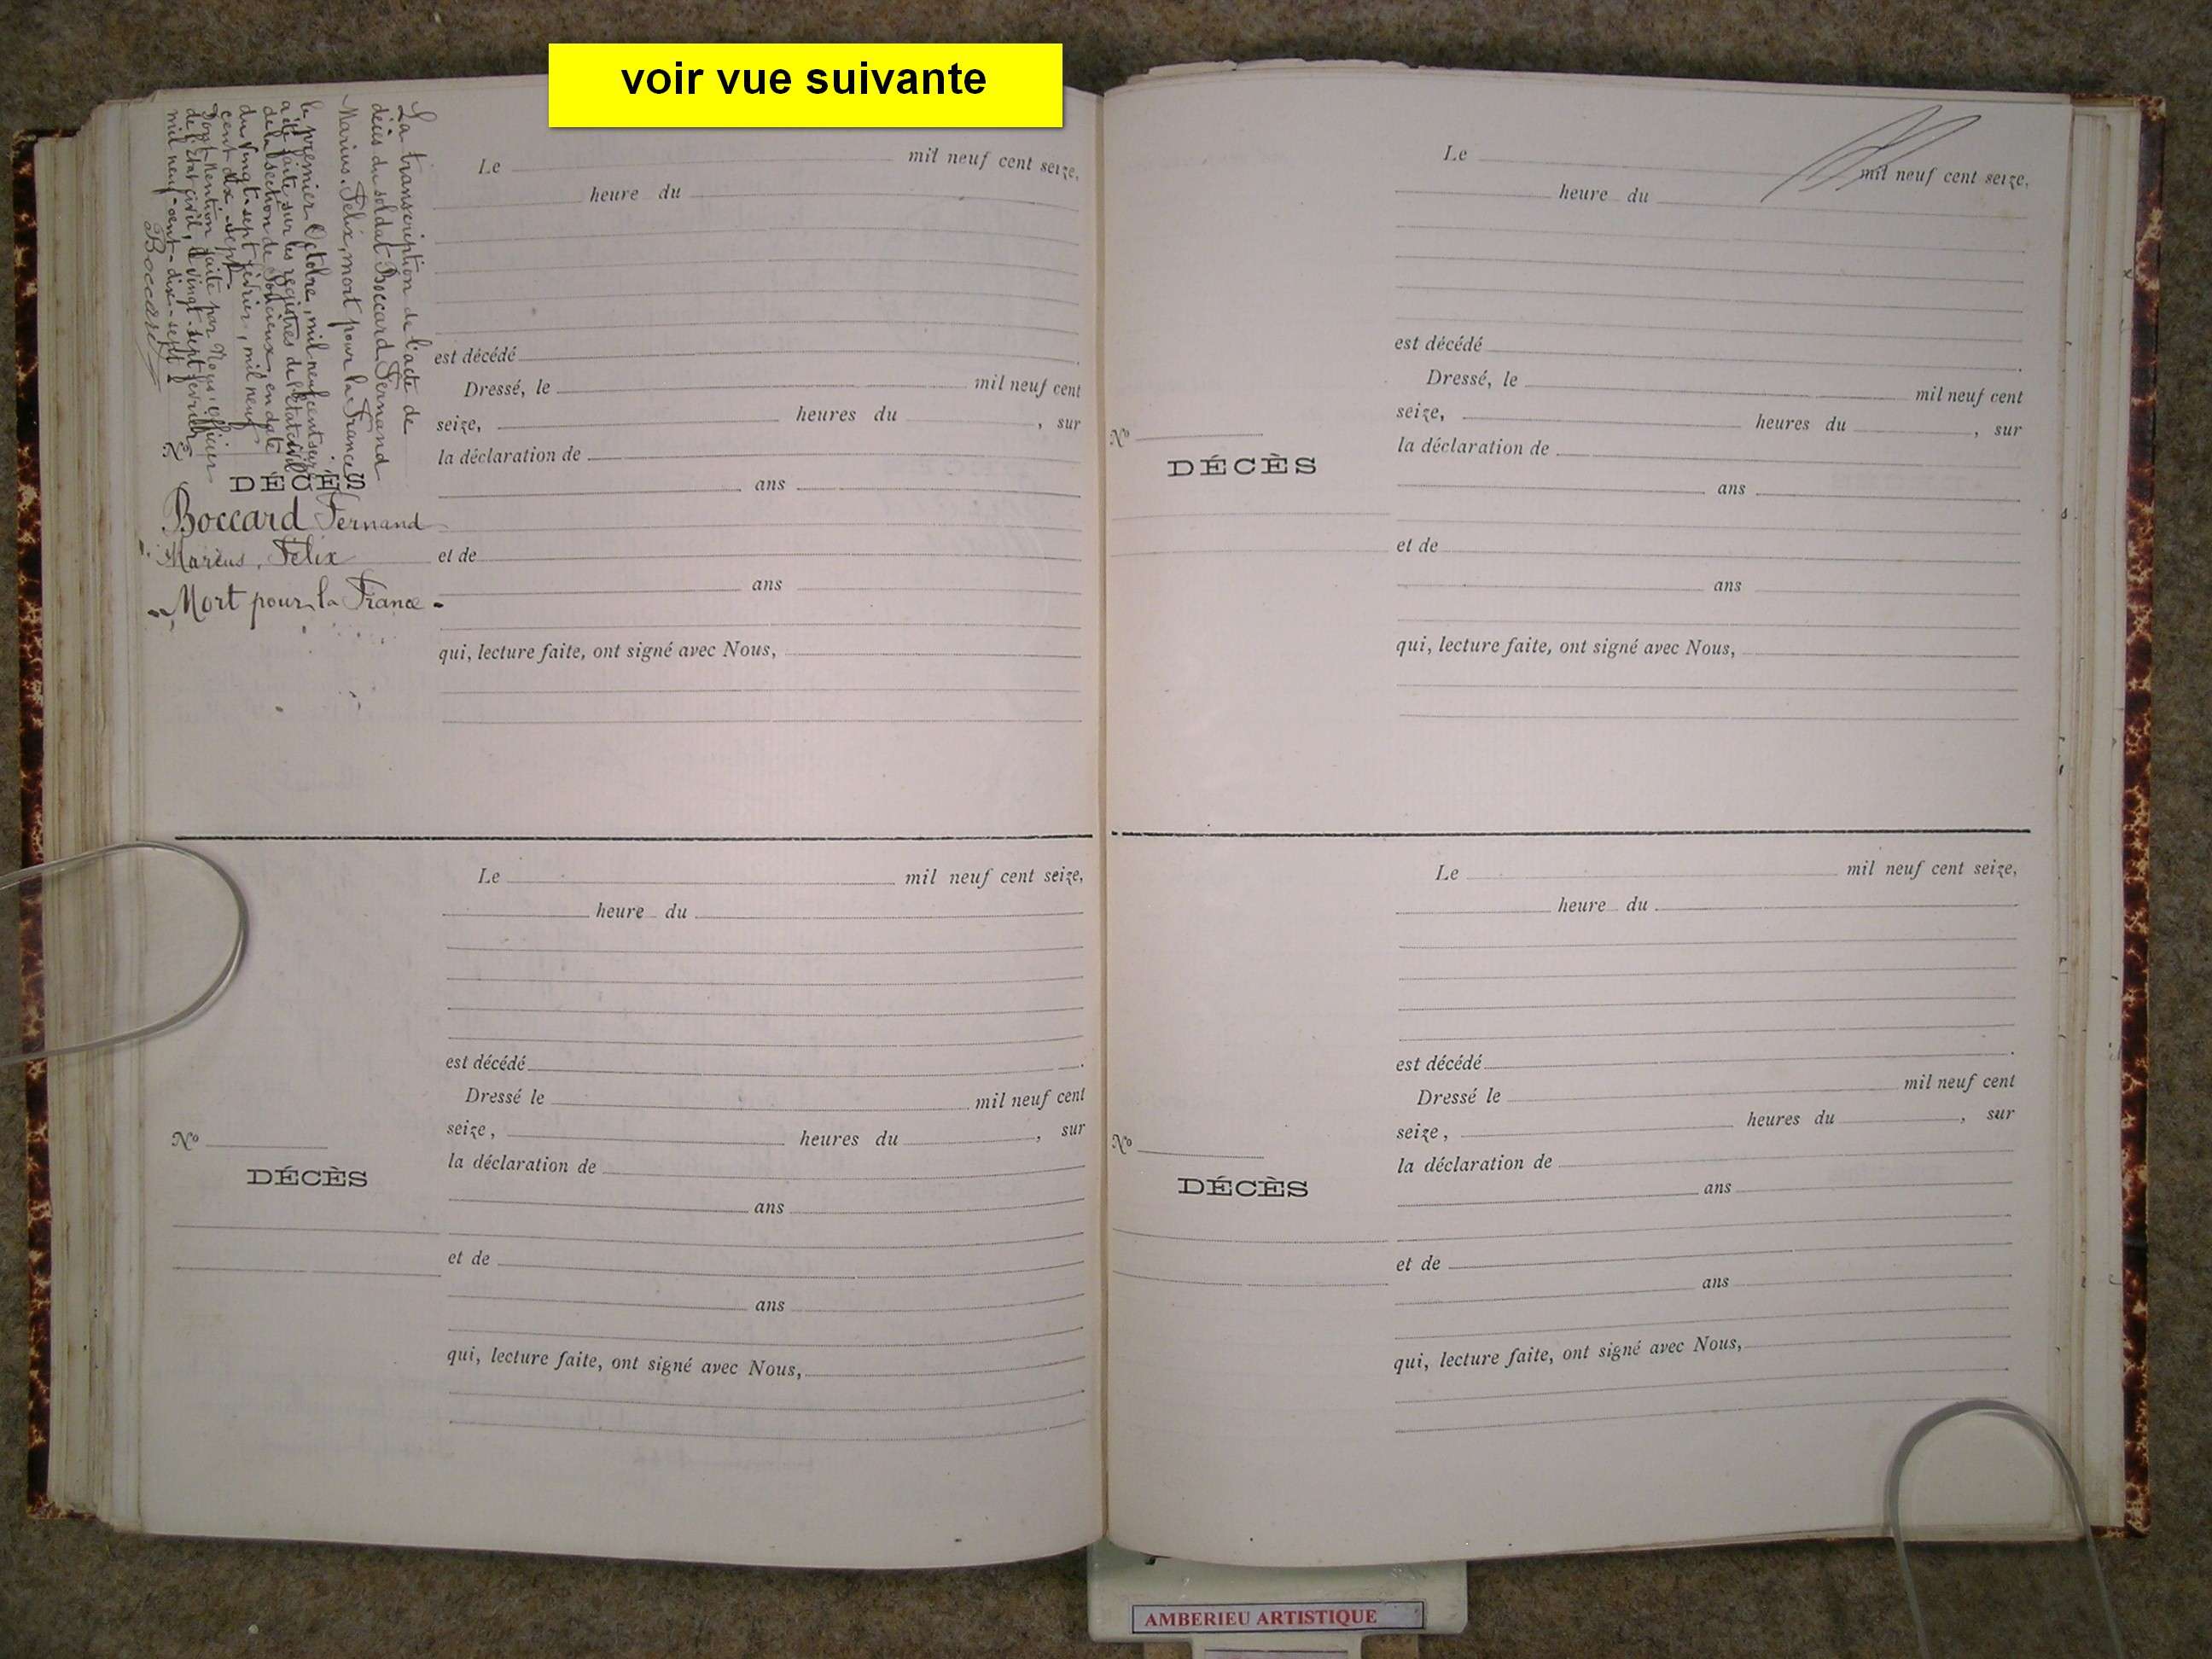 voir vue suivante
La transcription de l'acte de
décès du soldat Boccard Fernand
Marius, Félix, mort pour la France
le premier Octobre, mil neuf cent
a été faite sur les registres de l'Etat civil
de la section de en date
du vingt-sept février, mil neuf
cent dix-sept.
Dont Mention faite par Nous, officier
de l'Etat civil, le vingt-sept février
mil neuf-cent-dix-sept
Boccard
No
DÉCÈS
Boccard Fernand
Marius, Félix
Mort pour la France
Le mil neuf cent seize,
heure du
est décédé .
Dressé, le mil neuf cent
seize, heures du , sur
la déclaration de
ans
et de
ans
qui, lecture faite, ont signé avec Nous,
Le mil neuf cent seize,
heure du
est décédé .
Dressé le mil neuf cent
seize, heures du , sur
No
la déclaration de
DÉCÈS
ans
et de
ans
qui, lecture faite, ont signé avec Nous,
Le mil neuf cent seize,
heure du
est décédé .
Dressé, le mil neuf cent
seize, heures du , sur
No
la déclaration de
DÉCÈS
ans
et de
ans
qui, lecture faite, ont signé avec Nous,
Le mil neuf cent seize,
heure du
est décédé .
Dressé le mil neuf cent
seize, heures du , sur
No
la déclaration de
DÉCÈS
ans
et de
ans
qui, lecture faite, ont signé avec Nous,
AMBERIEU ARTISTIQUE